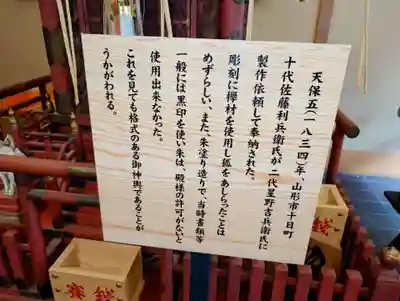 天保五(一八三四)年、山形市十日町
十代佐藤利兵衛氏が二代星野吉兵衛氏に
製作依頼して奉納された。
彫刻に欅材を使用し狐をあしらったことは
めずらしい、また、朱塗り造りで、当時書類等
一般には黒印を使い朱は、殿様の許可がないと
使用出来なかった。
これを見ても格式のある御神輿であることが
うかがわれる。
賽
賽銭